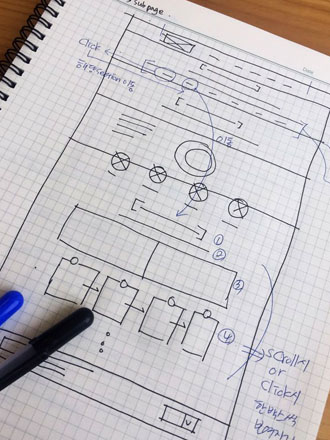 subpage.
Date
Click
해당 section 이동
이동
①
②
③
④
scroll시
or
click시
한박스씩
보여지